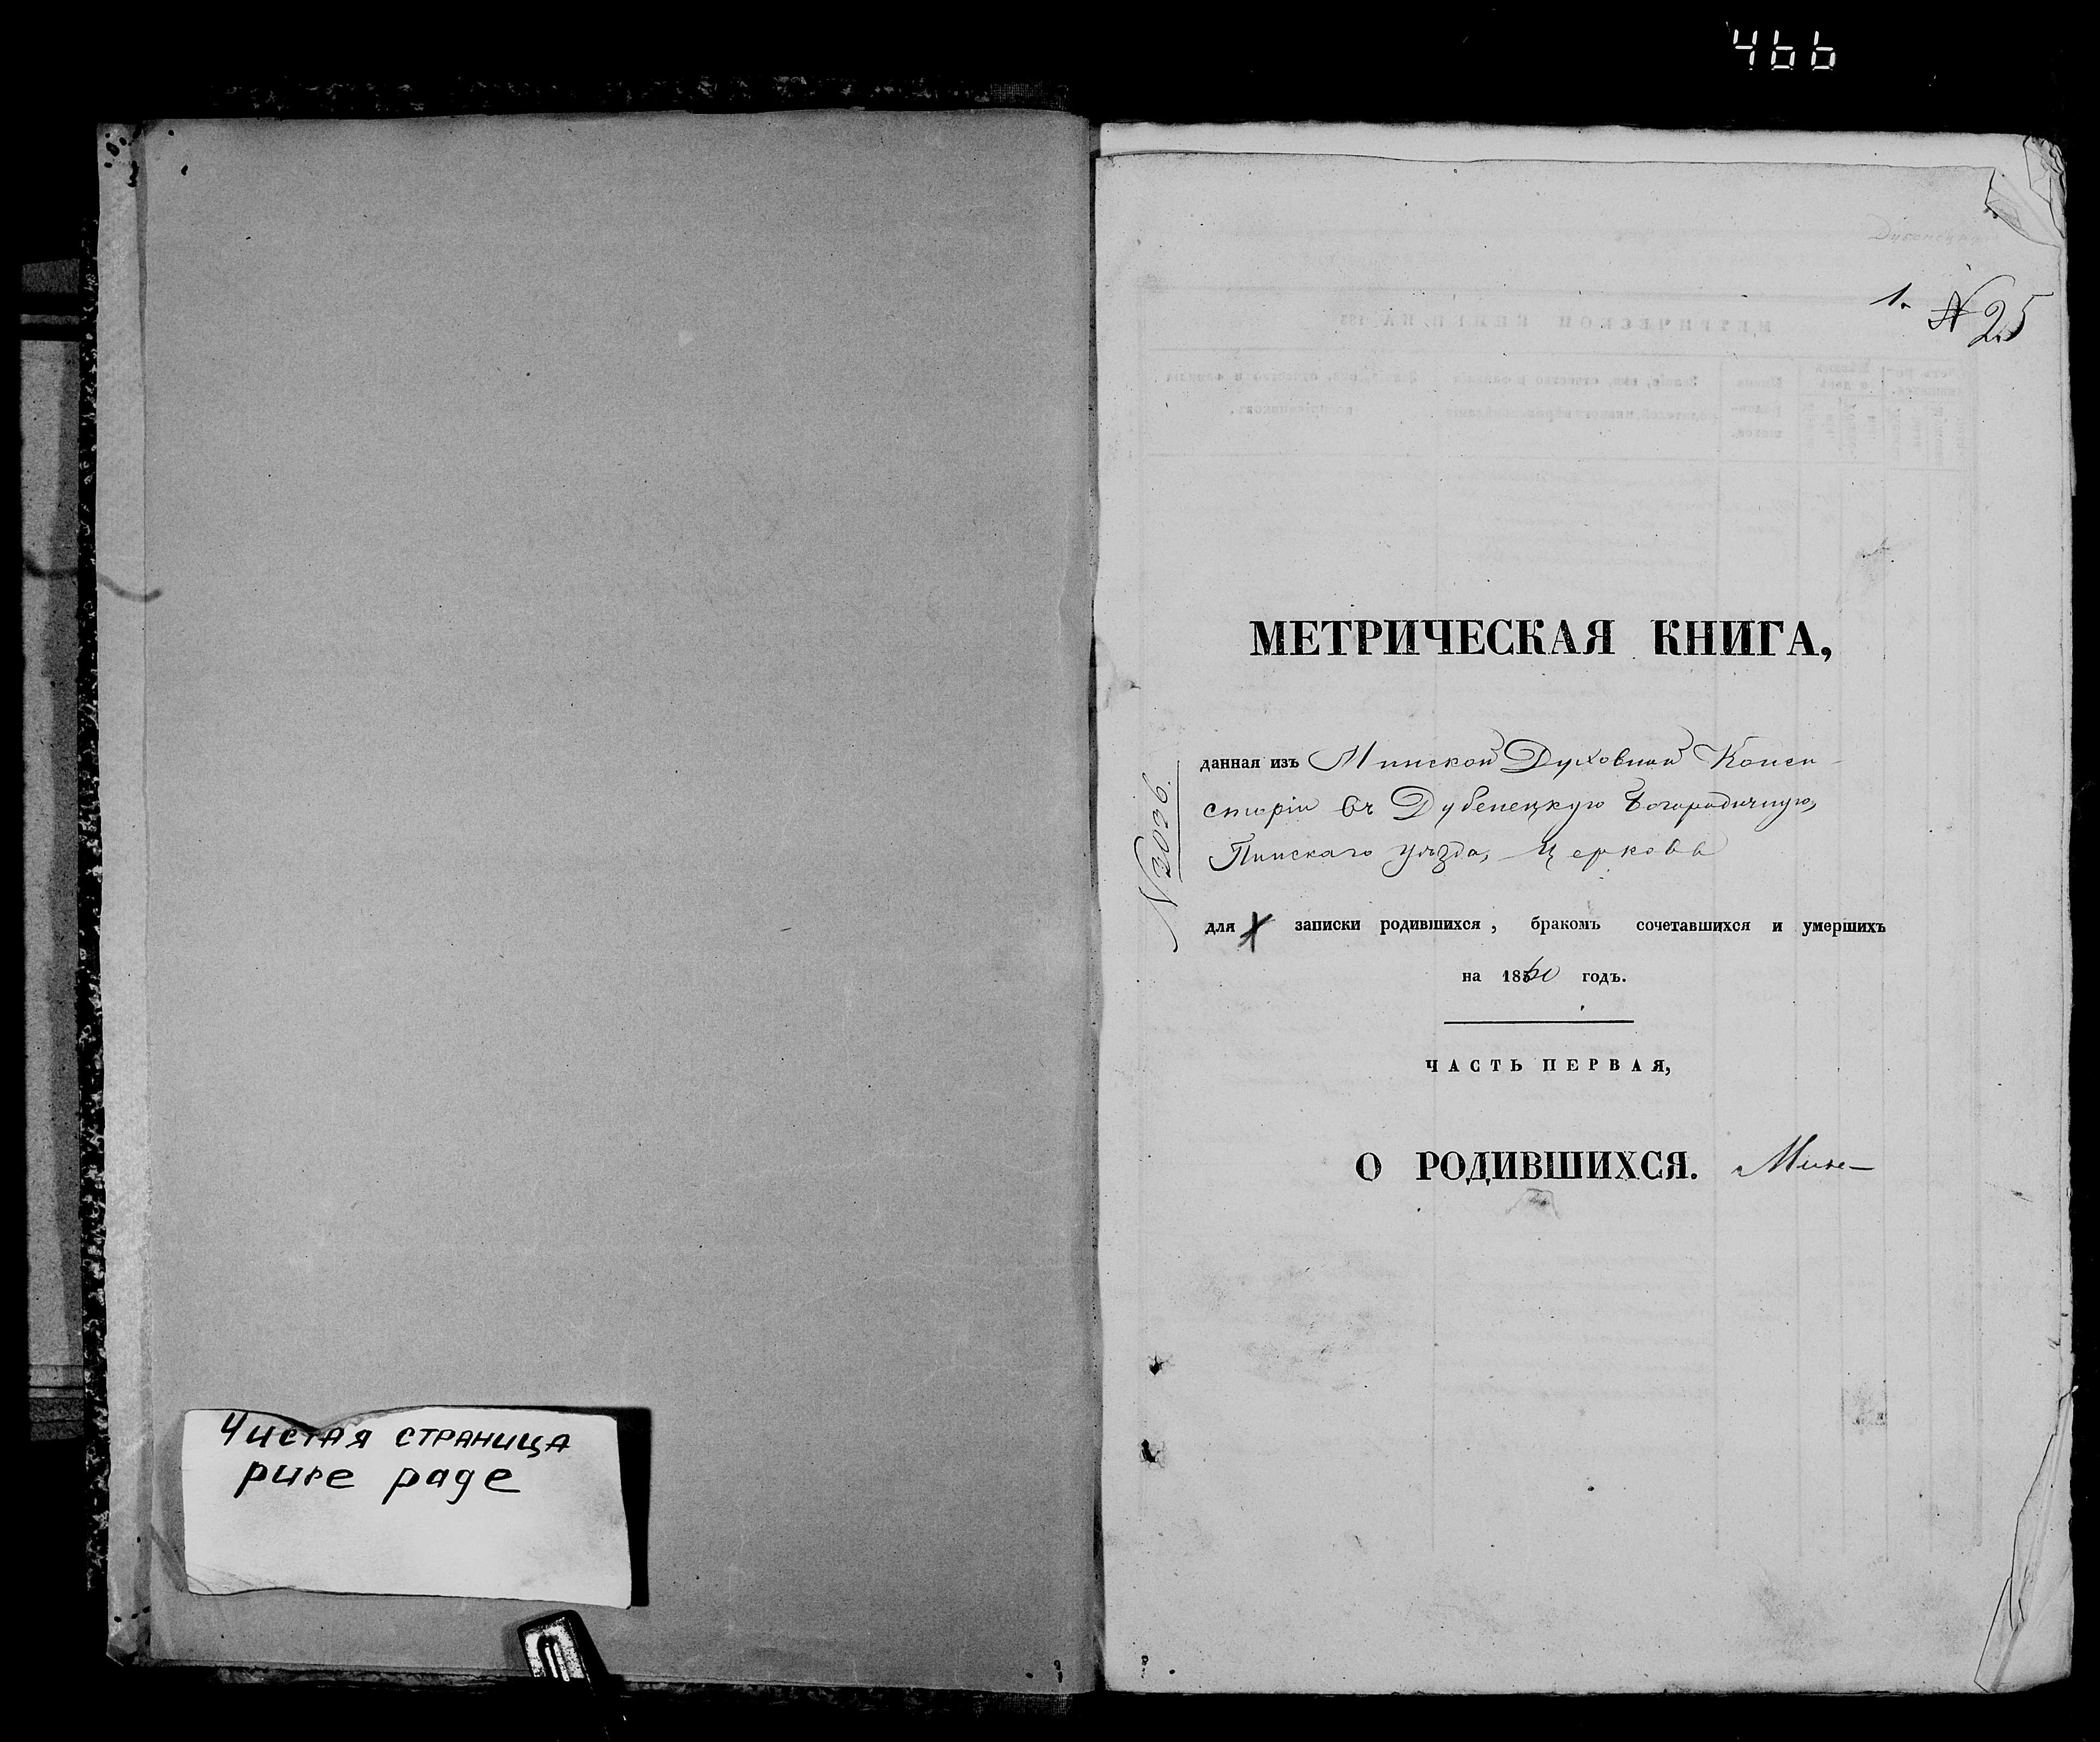 466
Чистая страница
pure page
1. №25
МЕТРИЧЕСКАЯ КНИГА,
данная изъ Минской Духовной Конси-
сторіи въ Дубенецкую Богородичную,
Пинскаго уѣзда, Церковь
№ 2036.
для записки родившихся, бракомъ сочетавшихся и умершихъ
на 1860 годъ.
ЧАСТЬ ПЕРВАЯ,
О РОДИВШИХСЯ.